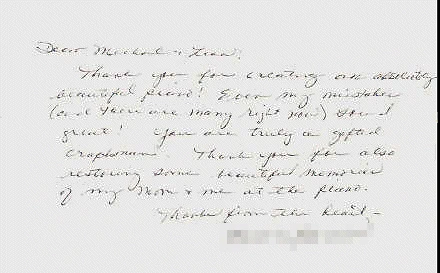 Dear Michael & Lisa,
Thank you for creating an absolutely
beautiful piano! Even my mistakes
(and there are many right now) sound
great! You are truly a gifted
craftsman. Thank you for also
restoring some beautiful memories
of my Mom & me at the piano.
Thanks from the heart –